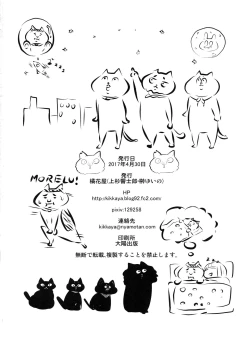 MORELU!
発行日
2017年4月30日
発行
橘花屋(上杉響士郎・榊はいの)
HP
http://kikkaya.blog92.fc2.com
pixiv:129258
連絡先
kikkaya@ruametan.com
印刷所
大陽出版
無断で転載、複製することを禁止します。